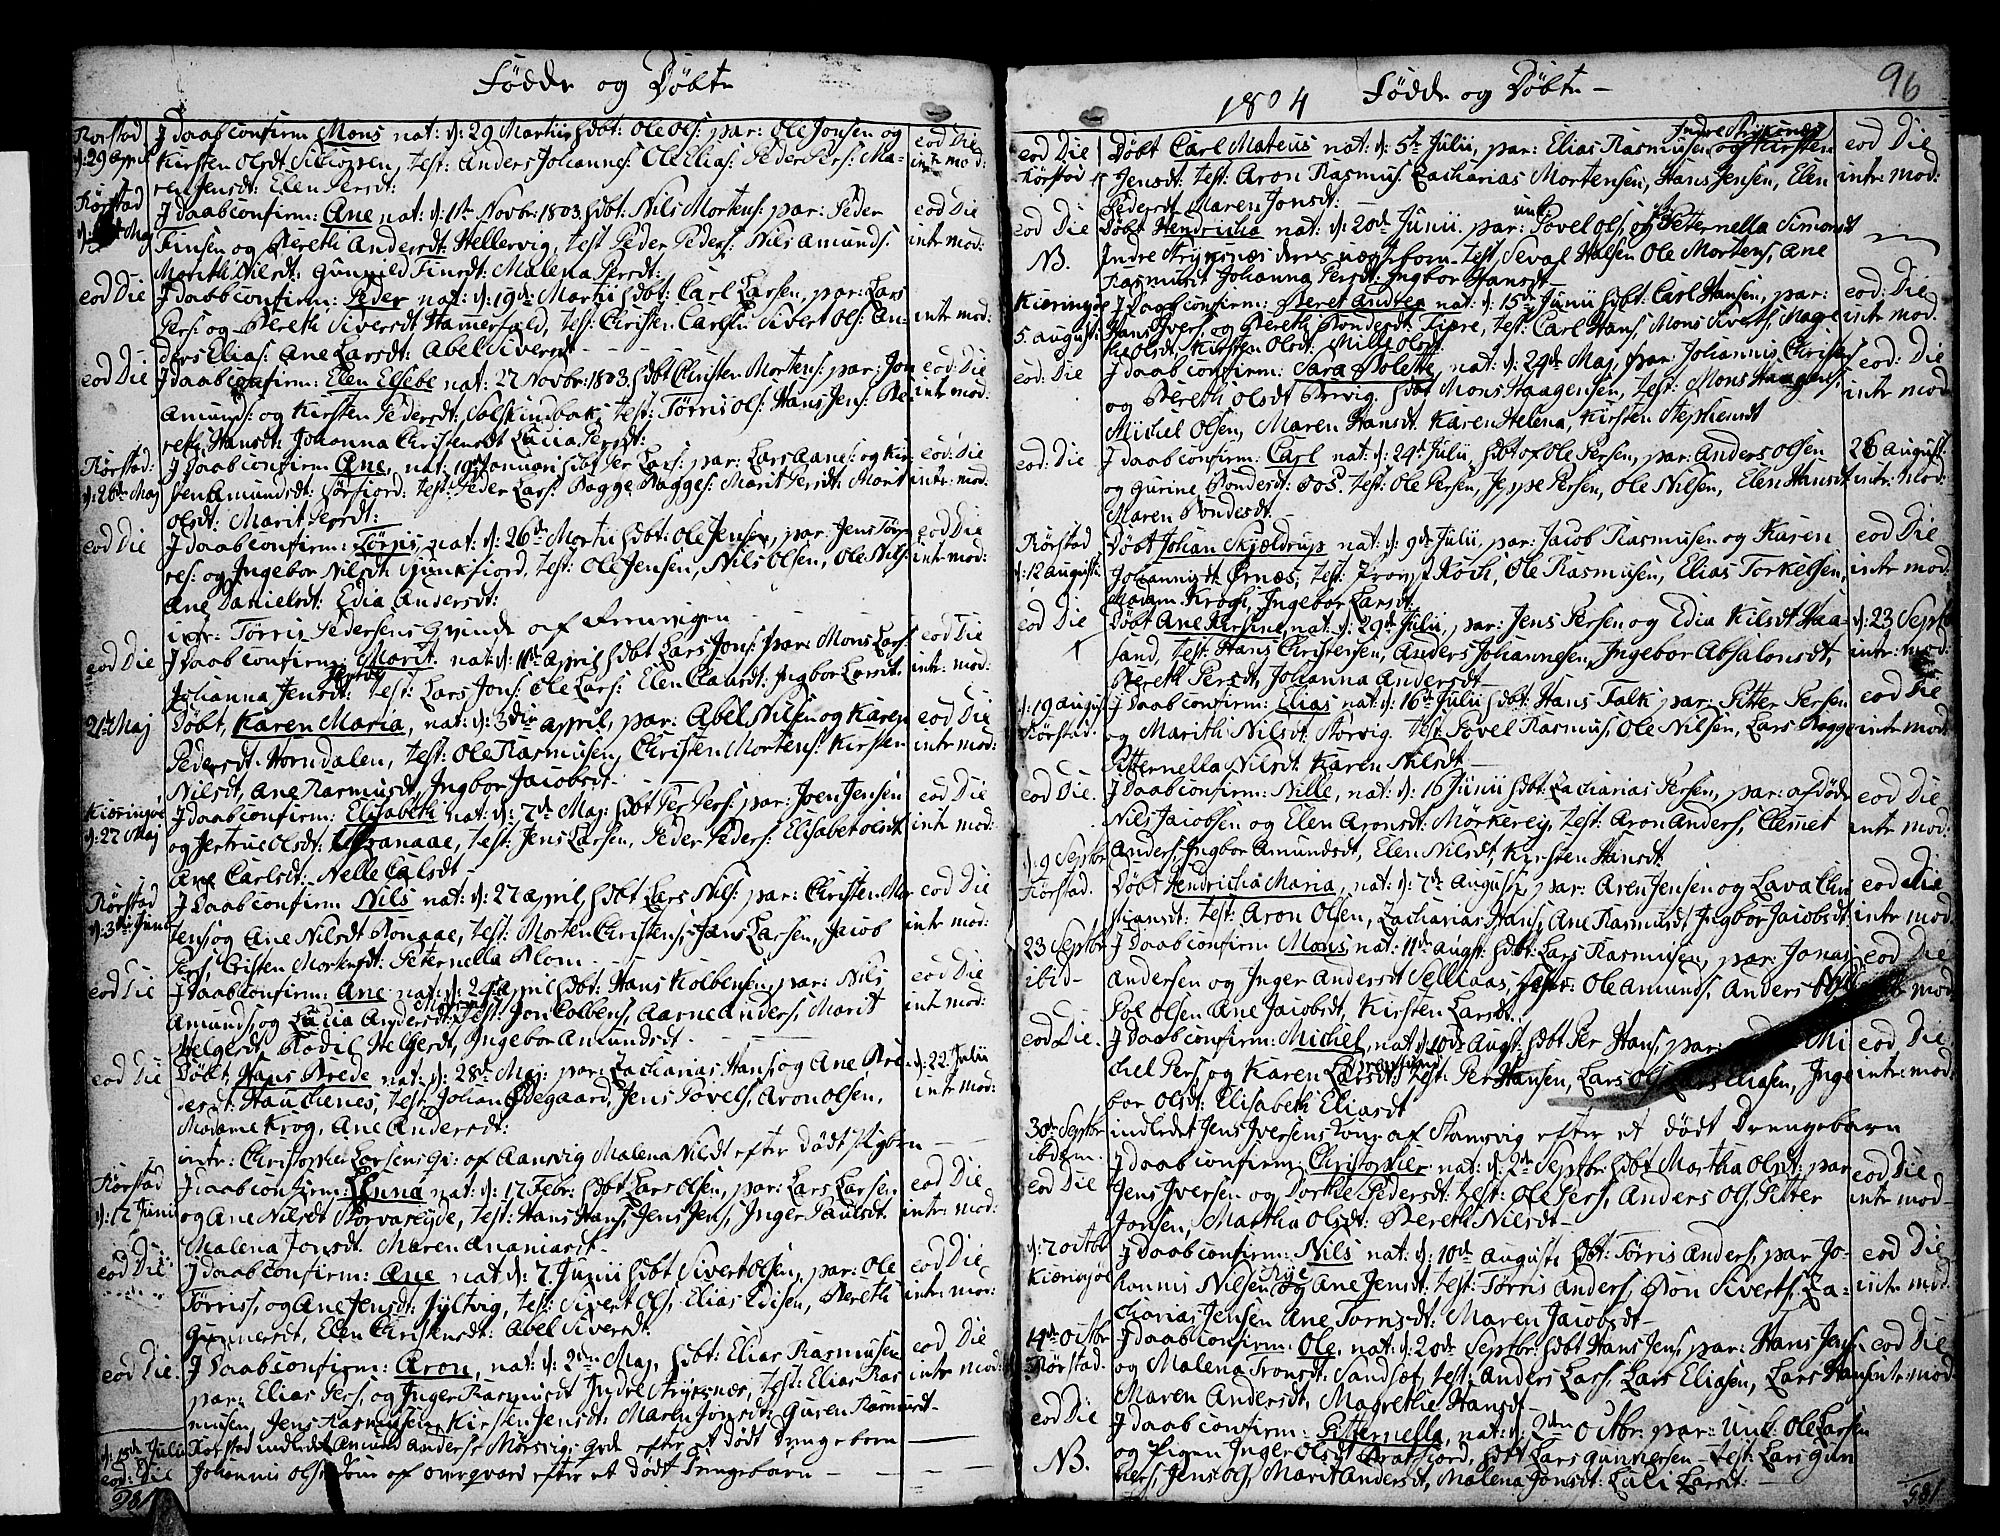 Födde og Döbte
Rörstad J daab confirm: Mons nat: d: 29 Martii hdbt: Ole Ols: par: Ole Jonsen og eod Die
d: 29 April Kirsten Olsdt test: Anders Johannes: Ole Elias: Peder Pers: Ma- intr: mod:
ren Jensdt: Elen Persdt:
Rörstad J daab confirm: Ane nat: d: 1st Novbr: 1803. hdbt: Nils Mortens: par: Peder eod Die
Finsen og Bereth Andersdt: Hellervig, test Peder Peders: Nils Amunds: intr: mod:
Marith Nilsdt: Gunnild Finsdt: Malena Persdt:
eod Die J daab confirm: Peder nat: d: 19de Martii hdbt: Carl Larsen, par: Lars
Pers: og Bereth Siversdt Hammerfald, test: Christen Carls: Sivert Ols: An- intr: mod:
ders Elias: Ane Larsdt: Abel Siversdt
eod Die J daab confirm: Elen Elsebe nat: 27 Novbr: 1803. hdbt Christen Mortens: par: Jon eod Die
Amunds: og Kirsten Pedersdt: Solskindbak, test: Törris Ols: Hans Jens: Be- intr: mod:
reth Hansdt: Johanna Christensdt Lucia Persdt:
Rörstad: J daab confirm: Ane, nat: 19 Januari hdbt Per Lars: par: Lars Aanes: og Kir- eod: Die
d: 26de Maj sten Amundsdt: Törfiord: test: Peder Lars: Bagge Bagges: Marit Persdt: Marit intr: mod:
Olsdt: Marit Persdt:
eod Die J daab confirm: Törris, nat: d: 26de Martii hdbt: Ole Jensen, par: Jens Tör- eod Die
res: og Ingebor Nilsdt test: Ole Jensen, Nils Olsen, Ole Nils: intr: mod:
Ane Danielsdt: Edia Andersdt:
intr: Törris Pedersens Qvinde af
eod Die J daab confirm: Marit. nat: d: 11te April hdbt Lars Jons: par: Mons Lars: eod Die
Johanna Jensdt: test: Lars Jons: Ole Lars: Elen Clausdt: Ingbor Larsdt. intr: mod:
21de Maj Döbt, Karen Maria, nat: d: 3die April, par: Abel Nilsen og Karen eod Die
Pedersdt. Horndalen, test: Ole Rasmusen, Christen Mortens: Kirsten intr: mod:
Nilsdt, Ane Rasmusdt, Ingbor Jacobsdt.
Kieringöe J daab confirm: Elisabeth nat: d: 7de Maj hdbt Per Pers: par: Joen Jensen eod Die
d: 27 Maj og Jertrue Olsdt: test: Jens Larsen, Peder Peders: Elisabet Olsdt intr: mod:
Ane Carlsdt: Nelle Calsdt
Rörstad J daab confirm Nils nat: d: 27 April, hdbt Lars Nils: par: Christen Mor eod Die
tens: og Ane Nilsdt test: Morten Christens: Hans Larsen, Jacob intr: mod:
Pers, Cristen Mortensdt: Peternella Blom
eod Die J daab confirm: Ane nat: d: 24 April hdbt: Hans Kolbensen, par: Nils eod Die
Amunds, og Lucia Andersdt: test: Jon Colbens, Aarne Anders, Marit intr: mod:
Helgersdt, Bodil Helgersdt, Ingebor Amundsdt.
eod Die Döbt Hans Brede nat: d: 28de Maj. par: Zacharias Hans: og Ane Bre- d: 22 Julii
desdt: Hauchenes, test: Johan Ödegaard, Jens Povels, Aron Olsen, intr: mod:
Madame Krog, Ane Andersdt:
intr: Christopher Larsens Qv: af Aansvig Malena Nilsdt efter dödt Pigbrn
Rörstad J daab confirm: Anna nat: d: 17 Febr: hdbt: Lars Olsen, par: Lars Larsen eod Die
d: 17 Junii og Ane Nilsdt test: Hans Hans, Jens Jens, Inger Paulsdt intr: mod:
Malena Jonsdt. Maren Ananiasdt
eod Die J daab confirm: Ane nat: d: 7. Junii hdbt Sivert Olsen, par: Ole eod Die
Törris, og Ane Jensdt: Jyltvig, test: Sivert Ols. Elias Edisen, Bereth intr: mod:
Gunnersdt, Elen Christensdt: Abel Siversdt:
eod Die. J daab confirm: Aron, nat: d: 2den Maj, hdbt: Elias Rasmusen eod Die
par: Elias Pers, og Inger Rasmusdt Indre Stryxsnæs, test: Elias Ras intr: mod:
musen, Jens Rasmusen, Kirsten Jensdt: Maren Jonsdt: Guren Rasmusdt
d: 15de Julii Rörstad indledt Amund Anders: Mörsvig efter et dödt Drengebarn
eod: Die Johannis Ols: af Overgaard efter et dödt Drengebarn
96
1804 Födde og Döbte
Indre Stryxnæs
eod Die Döbt Carl Mateus nat: d: 5te Julii, par: Elias Rasmusen og Kirsten eod Die
Rörstad Jensdt: test: Aron Rasmus: Zacharias Mortensen, Hans Jensen, Elen intr: mod:
Pedersdt Maren Jonsdt:
eod Die Döbt Hendricha nat: d: 20de Junii. par: Povel Ols, og Petternella Simonsdt
NB. Indre Stryxsnæs deres test, Seval Halsen Ole Mortens, Ane
Rasmusdt Johanna Persdt: Ingbor Hansdt.
Kieringöe J daab confirm: Beret Andrea nat: d: 15de Junii hdbt: Carl Hansen, par: eod: Die
5 august: Hans Ivers, og Bereth Bondesdt: test: Carl Hans, Mons Sivets, Magre intr: mod:
the Olsdt, Kirsten Olsdt: Mille Olsdt
eod: Die J daab confirm: Sara Bolette, nat: d: 24de Maj, par: Johannis Christens: eod: Die
og Bereth Olsdt hdbt Mons Haagensen, test: Mons Haagens, intr: mod
Michel Olsen, Maren Hansdt. Karen Helena, Kirsten Stephensdt
eod: Die J daab confirm: Carl nat: d: 24de Julii, hdbt of Ole Persen, par: Anders Olsen 26 august:
og Gurine Bondesdt: test: Ole Persen, Jeppe Persen, Ole Nilsen, Elen Hansdt intr: mod:
Maren Bondesdt.
Rörstad Döbt Johan Skieldrup nat: d: 9de Julii, par: Jacob Rasmusen og Karen eod Die
d: 12 augusti Johannisdt Örnæs, test: Koch, Ole Rasmusen, Elias Torkelsen, intr mod:
Madam Krogh, Ingebor Larsdt.
eod Die Döbt Ane Persine, nat: d: 29de Julii, par: Jens Persen og Edia Kilsdt Haa- d: 23 Septb
sand, test: Hans Christensen, Anders Johannesen, Ingebor Absalonsdt, intr: mod:
Bereth Persdt, Johanna Andersdt
d: 19 august J daab confirm: Elias nat: d: 16de Julii hdbt: Hans Falk par: Petter Persen eod Die
Rörstad. og Marith Nilsdt: Storvig. test Povel Rasmus, Ole Nilsen, Lars Bagge intr: mod
Petternella Nilsdt Karen Nilsdt
eod Die. J daab confirm: Nille, nat: d: 16 Junii hdbt: Zacharias Persen, par: afdöde eod Die
Nils Jacobsen og Elen Aronsdt: Mörkereg, test: Aron Anders, Clemet intr: mod:
Anders, Ingbor Amundsdt, Elen Nilsdt, Kirsten Hansdt
d: 9 Septbr Rörstad. Döbt Hendricha Maria, nat: d: 7de Augusti, par: Aren Jensen og Lava Chri eod Die
stiansdt: test: Aron Olsen, Zacharias Hans, Ane Rasmusdt, Ingbor Jacobsdt intr mod:
23 Septbr J daab confirm: Mons nat: 11te augst: hdbt: Lars Rasmusen, par: Jonas eod Die
ibid- Andersen og Inger Andersdt Selliaas, test: Ole Amunds, Anders mod
Pol Olsen Ane Jacobsdt, Kirsten Larsdt.
eod Die. J daab confirm: Michel, nat: d: 10de Augst: hdbt Per Hans, par: Mi eod Die
chel Pers, og Karen Larsdt, test: Per Hansen, Lars Ols, Lars Eliasen, Inge intr: mod:
bor Olsdt: Elisabeth Eliasdt
30de Septbr indledet Jens Iversens Kone af Stamsvig efter et dödt Drengebarn
ibdem. J daab confirm: Christopher. nat: d: 2de Septbr: hdbt Martha Olsdt: par eod Die
eod Die Jens Iversen og Dorthe Pedersdt: test: Ole Pers, Anders Ols, Petter intr: mod
Jonsen, Martha Olsdt: Bereth Nilsdt
d: 7 octbr J daab confirm: Nils nat: d: 10de Augusti hdbt: Törris Anders, par Jo- eod Die
Kieringöe hannis Nilsen og Ane Jensdt: test: Törris Anders, Bon Siverts, Za- intr: mod:
charias Jensen Ane Tornisdt: Maren Jacobsdt
14de Octbr J daab confirm: Ole, nat: d: 20de Septbr: hdbt Hans Jens, par: Hans Jens eod Die
Rörstad. og Malena Tronsdt: Sandsæt, test: Anders Lars, Lars Eliasen, Lars Hans intr: mod
Maren Andersdt, Magrethe Hansdt
eod Die J daab confirm: Petternella, nat: d: 2den Octbr: par: Unk: Ole Larsen
NB. og Pigen Inger Olsdt hdbt Lars Gunnersen test: Lars Gun
ners, Jens Ols, Marit Andersdt, Malena Jonsdt: Larsdt: